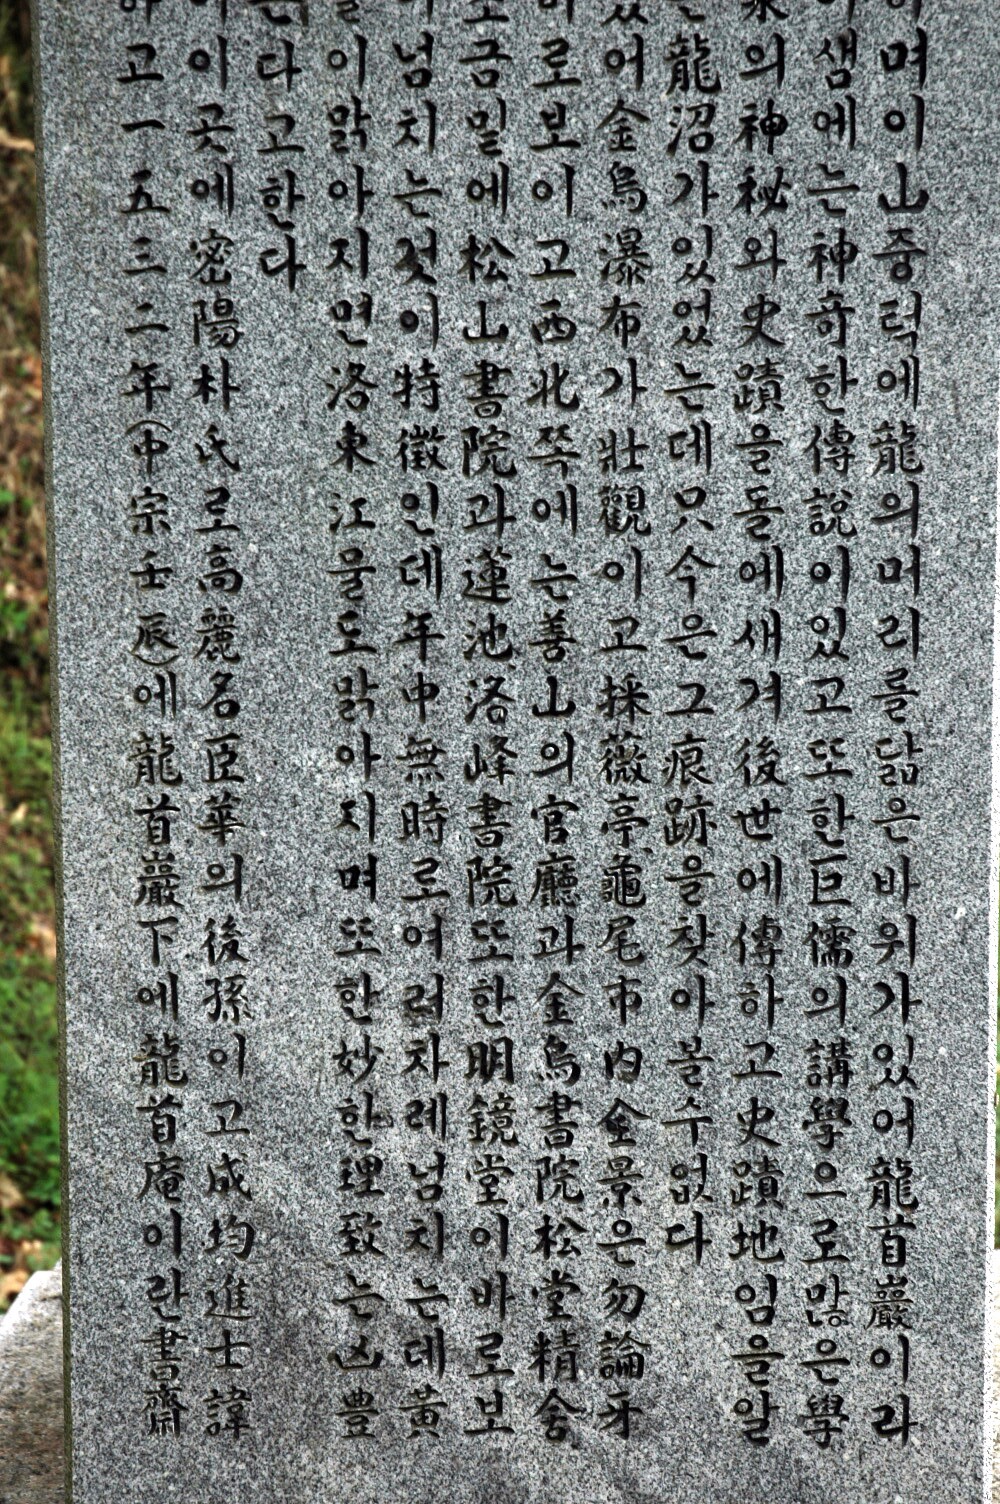 며이山중턱에龍의머리를닮은바위가있어龍首巖이라
샘에는神奇한傳說이있고또한巨儒의講學으로많은學
의神秘와史蹟을돌에새겨後世에傳하고史蹟地임을알
龍沼가있었는데只今은그痕跡을찾아볼수없다
있어金烏瀑布가壯觀이고採薇亭龜尾市內全景은勿論
로보이고西北쪽에는善山의官廳과金烏書院松堂精舍
금밑에松山書院과蓮池洛峰書院또한明鏡堂이바로보
넘치는것이特徵인데年中無時로여러차례넘치는데黃
이맑아지면洛東江물도맑아지며또한妙한理致는凶豊
다고한다
이곳에密陽朴氏로高麗名臣華의後孫이고成均進士諱
고一五三二年(中宗壬辰)에龍首巖下에龍首庵이란書齋